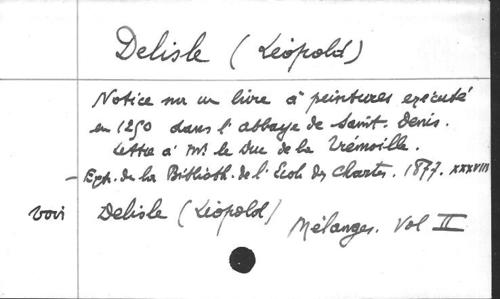 Delisle (Léopold)
Notice sur un livre à peintures exécuté
en 1250 dans l'abbaye de Saint-Denis.
Lettre à Mr. le Duc de la Trémoille.
– Extr. de la Biblioth. de l'Ecole des Chartes. 1877. XXXVIII
voir Delisle (Léopold)
Mélanges. Vol II